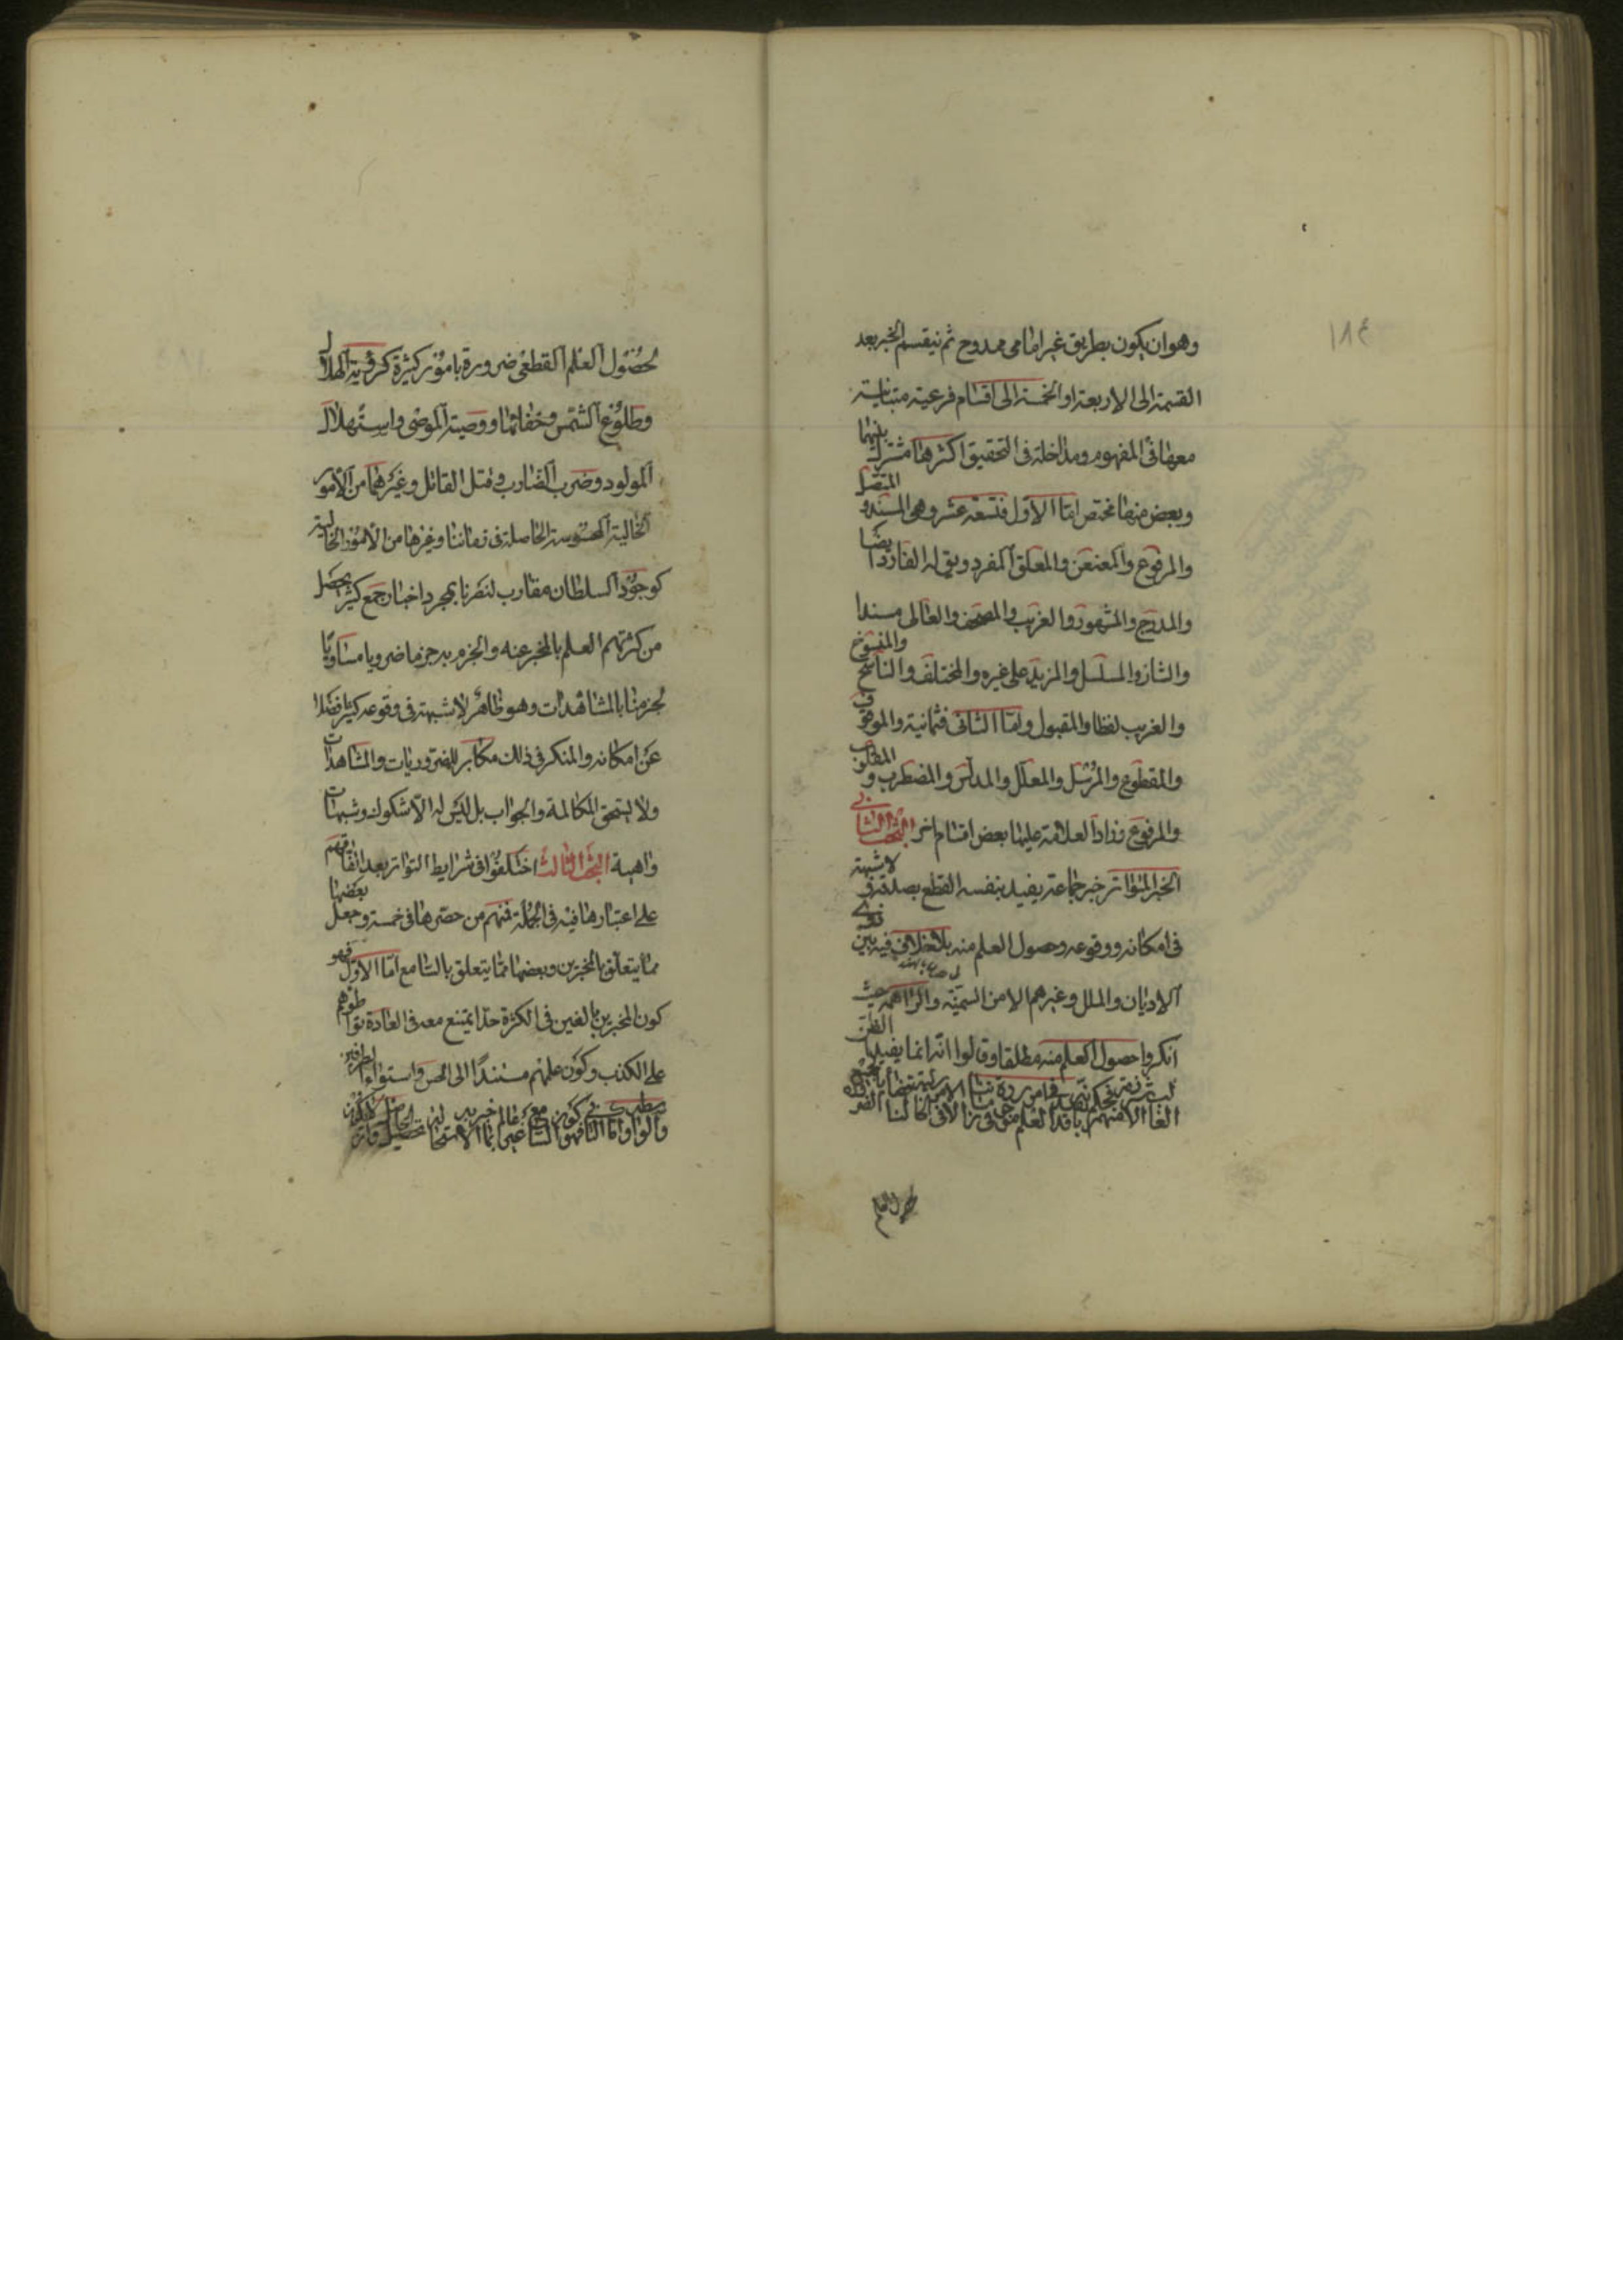 ١٨٤
وهو ان يكون بطريق غير امامي ممدوح ثم ينقسم الخبر بعد
القسمة الى الاربعة او الخمسة الى اقسام فرعية متباينة
معها في المفهوم ومداخلة في التحقيق اكثرها مشترك بينهما
وبعض منها مختص اما الاول فتسعة عشر وهي المسند و المتصل
والمرفوع والمعنعن والمعلق المفرد ويق له الفارد ايضا
والمدرج والمشهور والغريب والمصحف والعالى مسندا
والشاذ والمسلسل والمزيد على غيره والمختلف والناسخ والمنسوخ
والغريب لفظا والمقبول واما الثانى فثمانية والموقوف
والمقطوع والمرسل والمعلل والمدلس والمضطرب و المقلوب
والمرفوع وزاد العلامة عليها بعض اقسام اخر البحث الثاني
الخبر المتواتر خبر جماعة يفيد بنفسه القطع بصدقه و لا شبهة
في امكانه ووقوعه وحصول العلم منه بلا خلاف فيه بين ذوي
الاديان والملل وغيرهم الا من السمنية والبراهمة حيث
انكروا حصول العلم منه مطلقا وقالوا انه انما يفيد الظن
حصول العلم
لحصول العلم القطعي ضرورة بامور كثيرة كرؤية الهلال
وطلوع الشمس وخفائها ووصية الموصى واستهلال
المولود وضرب الضارب وقتل القاتل وغيرهما من الأمور
الخالية المحسوسة الحاصلة في زماننا وغيرها من الأمور الخالية
كوجود السلطان مقارب لنصرنا بمجرد اخبار جمع كثير يحصل
من كثرتهم العلم بالمخبر عنه والجزم به جزما ضروريا مساويا
لجزمنا بالمشاهدات وهو ظاهر لا شبهة في وقوعه كثيرا فضلا
عن امكانه والمنكر في ذلك مكابر للضروريات والمشاهدات
ولا يستحق المكالمة والجواب بل ليس له الا شكوك وشبهات
واهية البحث الثالث اختلفوا في شرايط التواتر بعد اتفاقهم
على اعتبارها فيه في الجملة فمنهم من حصرها في خمسة وجعل بعضها
مما يتعلق بالمخبرين وبعضها مما يتعلق بالسامع اما الاول فهو
كون المخبرين بالغين في الكثرة حدا يمتنع معه في العادة تواطؤهم
على الكذب وكون علمهم مستندًا الى الحس واستواء الطرفين